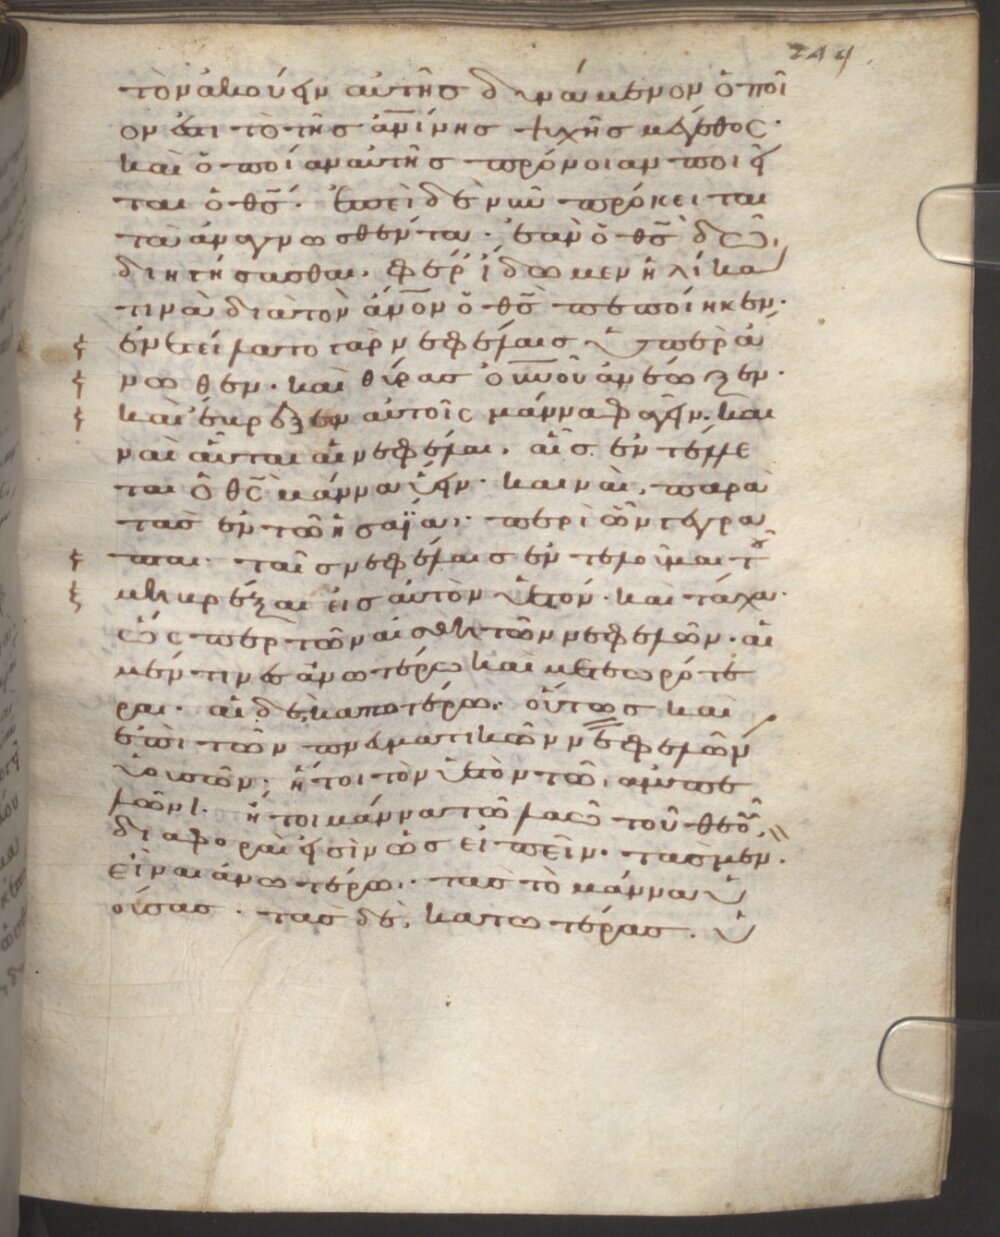 244
τὸν ἀκούειν αὐτῆς δυνάμενον ὁποῖ
όν ἐστι τὸ τῆς ἀνίνης ψυχῆς μέγεθος·
καὶ ὁποίαν αὐτῆς πρόνοιαν ποιεῖ
ται ὁ θς· ἐπεὶ δὲ νῦν πρόκειται
τὰ ἀναγνωσθέντα· ἐὰν ὁ θς δῶ,
διηγήσασθαι· φέρ' ἴδωμεν ἡλίκα
τινὰ διὰ τὸν ἄνον ὁ θς πεποίηκεν·
ἐνετείλατο γὰρ νεφέλαις ὑπερά
νωθεν· καὶ θύρας οὐνοῦ ἀνέωξεν·
καὶ ἔβρεξεν αὐτοῖς μάννα φαγεῖν· καὶ
ναὶ αὗται αἱ νεφέλαι, αἷς ἐντέλλε
ται ὁ θς μάννα ὕειν· καὶ ναὶ, παρὰ
τὰς ἐν τῶ ἡσαΐα, περὶ ὧν γέγρα
πται· ταῖς νεφέλαις ἐντελοῦμαι τοῦ
μὴ βρέξαι εἰς αὐτὸν ὑετόν· καὶ τάχα
ὥσπερ τῶν αἰσθητῶν νεφελῶν· αἱ
μέν τινες ἀνωτέρω καὶ μετεωρότε
ραι· αἱ δὲ, κατωτέρω· οὕτως καὶ
ἐπὶ τῶν πνευματικῶν νεφελῶν
ὑουσῶν· ἤτοι τὸν ὑετὸν τῶ ἀμπε
λῶνι· ἤτοι μάννα τῶ λαῶ τοῦ θεοῦ,
διαφοραὶ εἰσὶν ὡς εἰπεῖν· τὰς μὲν
εἶναι ἀνωτέρω· τὰς τὸ μάννα ὑ
ούσας· τὰς δὲ, κατωτέρας· ὑ